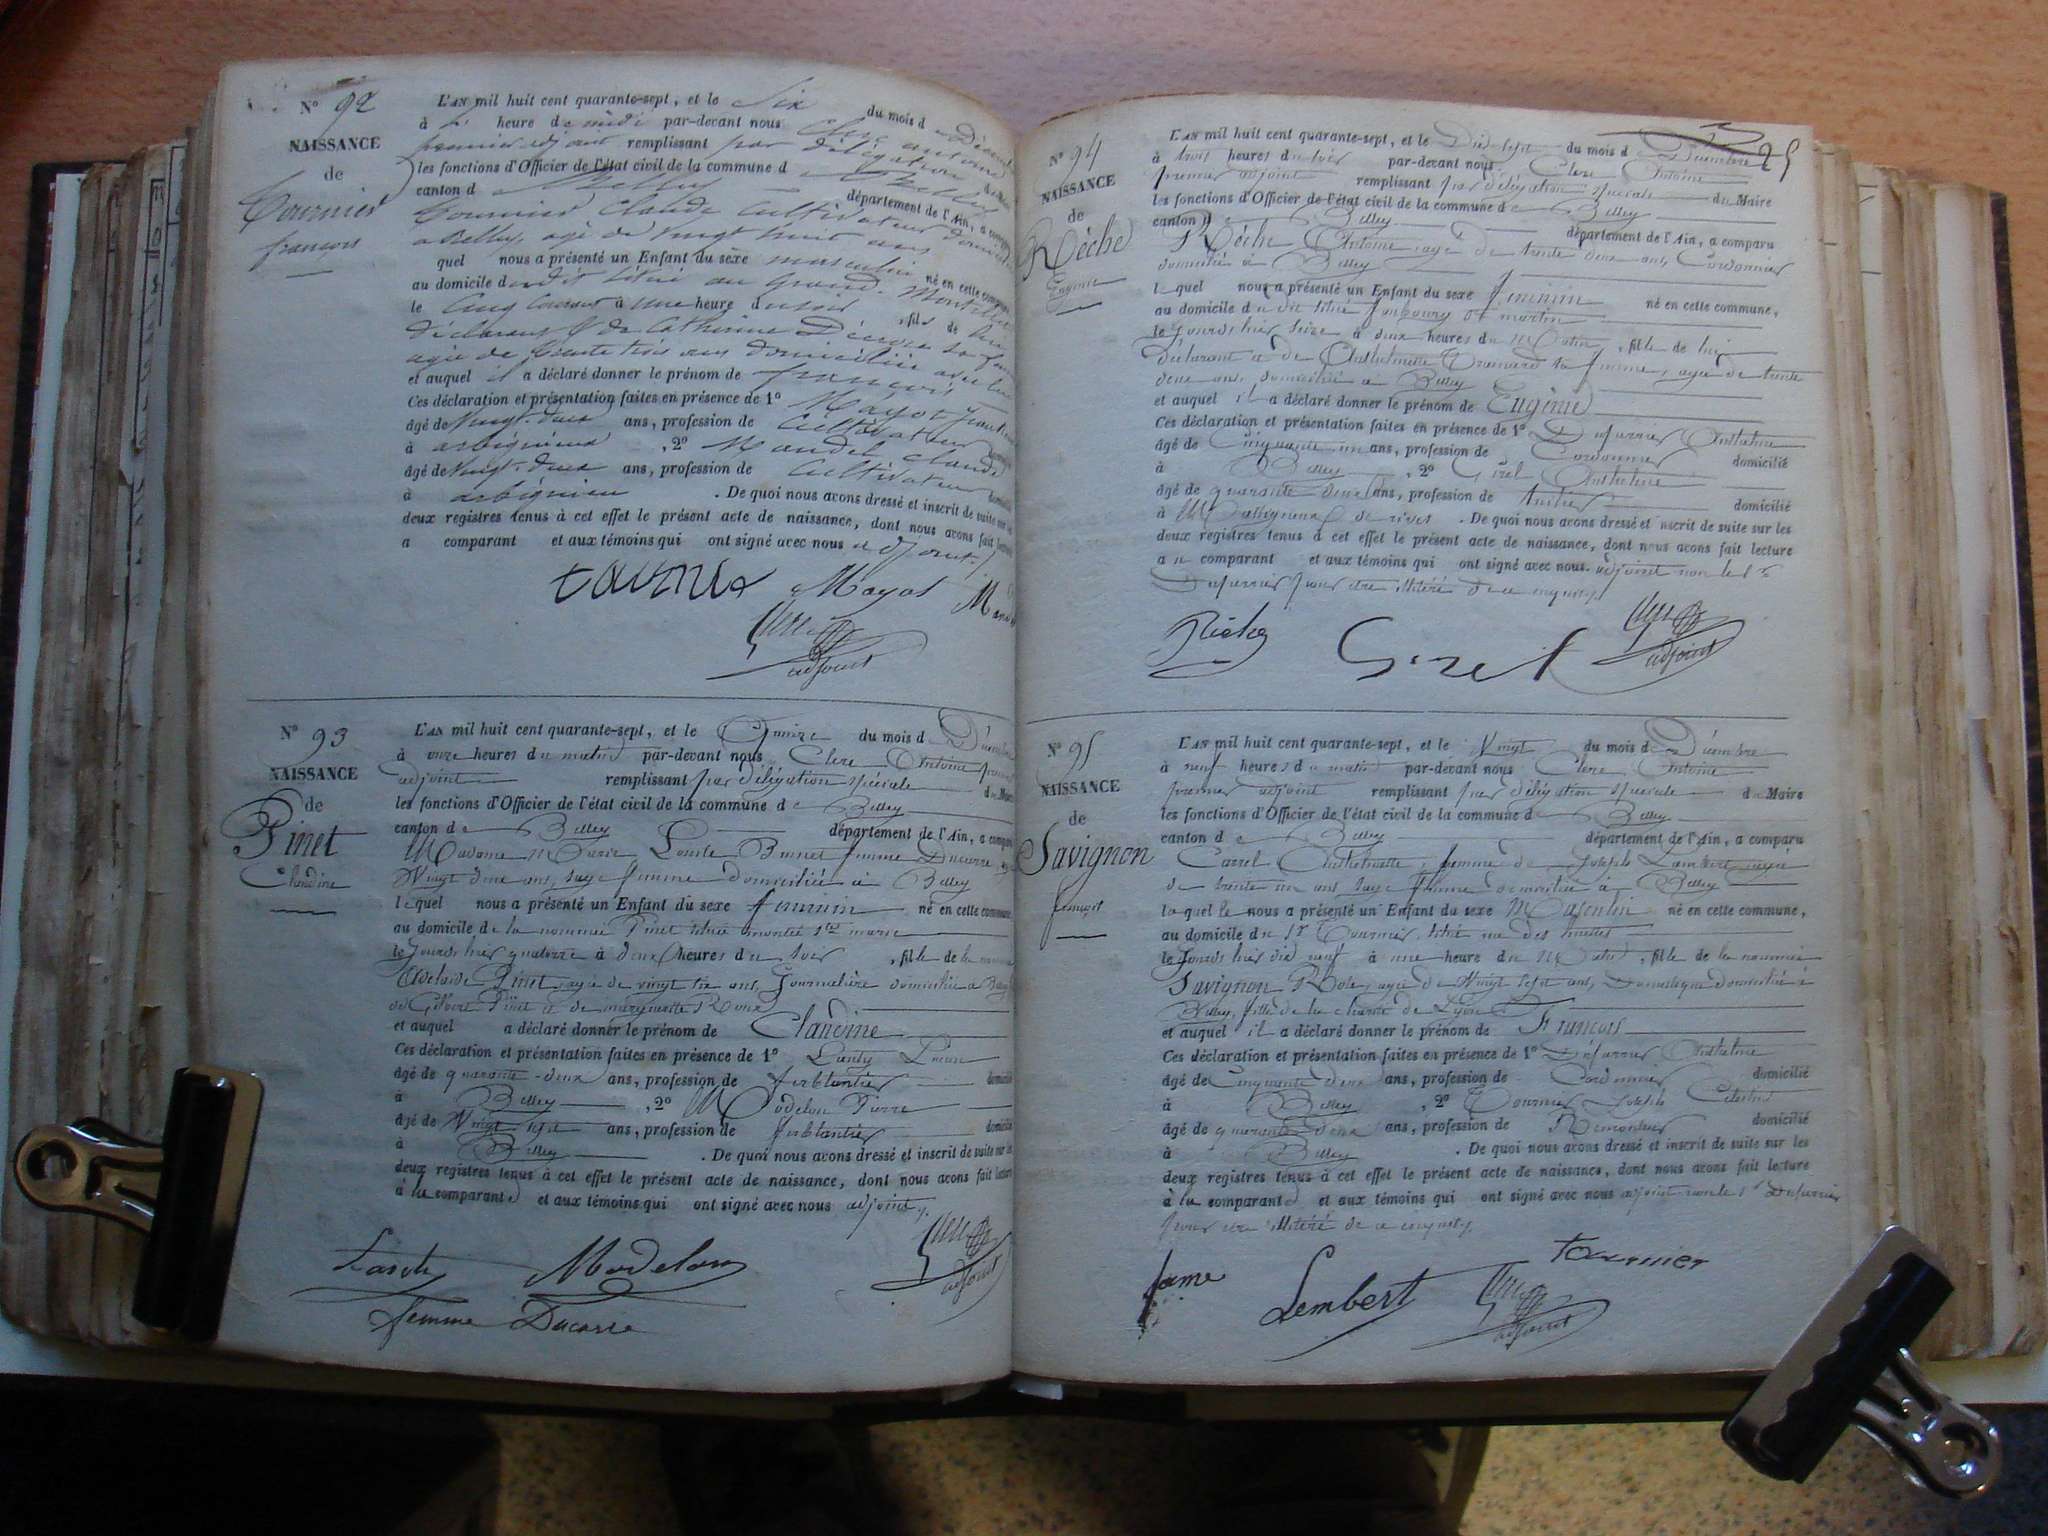 N° 92
NAISSANCE
de
Tournier
françois
L'AN mil huit cent quarante-sept, et le Six du mois d
à heure de midi par-devant nous Clerc antoine
premier adjoint remplissant par délégation
les fonctions d'Officier de l'état civil de la commune d
canton d Belley département de l'Ain, a comparu
Tournier Claude Cultivateur
a Belley, agé de Vingt huit ans
quel nous a présenté un Enfant du sexe masculin né en cette commune
au domicile du dit situé au Grand
le Cinq Courant à une heure du soir, fils de lui
déclarant & de Catherine
agée de trente trois ans domiciliée avec lui
et auquel il a déclaré donner le prénom de françois
Ces déclaration et présentation faites en présence de 1° Mayot
âgé de Vingt-deux ans, profession de Cultivateur
à arbignieu, 2° Mandet Claude
âgé de Vingt-deux ans, profession de Cultivateur
à arbignieu. De quoi nous avons dressé et inscrit de suite sur les
deux registres tenus à cet effet le présent acte de naissance, dont nous avons fait lecture
a comparant et aux témoins qui ont signé avec nous adjoint
Mayot
adjoint
N° 93
NAISSANCE
de
Pinet
Claudine
L'AN mil huit cent quarante-sept, et le Quinze du mois d Décembre
à onze heures du matin par-devant nous Clerc Antoine
adjoint remplissant par délégation spéciale du Maire
les fonctions d'Officier de l'état civil de la commune de Belley
canton de Belley département de l'Ain, a comparu
Madame Marie Louise femme Ducarre
Vingt deux ans, sage femme domiciliée à Belley
lequel nous a présenté un Enfant du sexe feminin né en cette commune,
au domicile de la nommée Pinet situé montée Ste marie
le Jourdshier quatorze à deux heures du soir, fille de la
Adelaide Pinet, agée de vingt six ans, Journalière domiciliée a
de Pinet et de marguerite Roux
et auquel a déclaré donner le prénom de Claudine
Ces déclaration et présentation faites en présence de 1°
âgé de quarante-deux ans, profession de ferblantier domicilié
à Belley, 2° Modelon Pierre
âgé de Vingt sept ans, profession de ferblantier domicilié
à Belley. De quoi nous avons dressé et inscrit de suite sur les
deux registres tenus à cet effet le présent acte de naissance, dont nous avons fait lecture
à la comparante et aux témoins qui ont signé avec nous adjoint
Modelon
adjoint
femme Ducarre
25
N° 94
NAISSANCE
de
Rèche
Eugénie
L'AN mil huit cent quarante-sept, et le Dix sept du mois de Décembre
à trois heures du soir par-devant nous Clerc Antoine
premier adjoint remplissant par délégation spéciale du Maire
les fonctions d'Officier de l'état civil de la commune de Belley
canton de Belley département de l'Ain, a comparu
Rèche Antoine, agé de trente deux ans, Cordonnier
domicilié à Belley
lequel nous a présenté un Enfant du sexe feminin né en cette commune,
au domicile du dit situé faubourg St martin
le Jourdshier seize à deux heures du Matin, fille de lui
déclarant et de Anthelmette sa femme, agée de trente
deux ans, domiciliée à Belley
et auquel il a déclaré donner le prénom de Eugénie
Ces déclaration et présentation faites en présence de 1° Anthelme
âgé de Cinquante un ans, profession de Cordonnier domicilié
à Belley, 2° Girel Anthelme
âgé de quarante deux ans, profession de domicilié
à Massigneux de rives. De quoi nous avons dressé et inscrit de suite sur les
deux registres tenus à cet effet le présent acte de naissance, dont nous avons fait lecture
au comparant et aux témoins qui ont signé avec nous adjoint non le 1er
pour être illitéré de ce enquis
adjoint
N° 95
NAISSANCE
de
Savignon
françois
L'AN mil huit cent quarante-sept, et le Vingt du mois d Décembre
à neuf heures du matin par-devant nous Clerc Antoine
premier adjoint remplissant par délégation spéciale du Maire
les fonctions d'Officier de l'état civil de la commune de Belley
canton de Belley département de l'Ain, a comparu
Carrel Anthelmette, femme de Joseph Lambert agée
de trente un ans sage femme domiciliée à Belley
laquelle nous a présenté un Enfant du sexe Masculin né en cette commune,
au domicile du Sr Tournier, situé rue des
le Jourdshier dix neuf à une heure du Matin, fils de la nommée
Savignon agée de Vingt sept ans, Domestique domiciliée à
Belley, fille de la charité de Lyon
et auquel il a déclaré donner le prénom de François
Ces déclaration et présentation faites en présence de 1° Anthelme
âgé de Cinquante deux ans, profession de Cordonnier domicilié
à Belley, 2° Tournier Joseph Célestin
âgé de quarante deux ans, profession de domicilié
à Belley. De quoi nous avons dressé et inscrit de suite sur les
deux registres tenus à cet effet le présent acte de naissance, dont nous avons fait lecture
à la comparante et aux témoins qui ont signé avec nous adjoint non le 1er
pour être illitéré de ce enquis
fame Lembert Tournier
adjoint